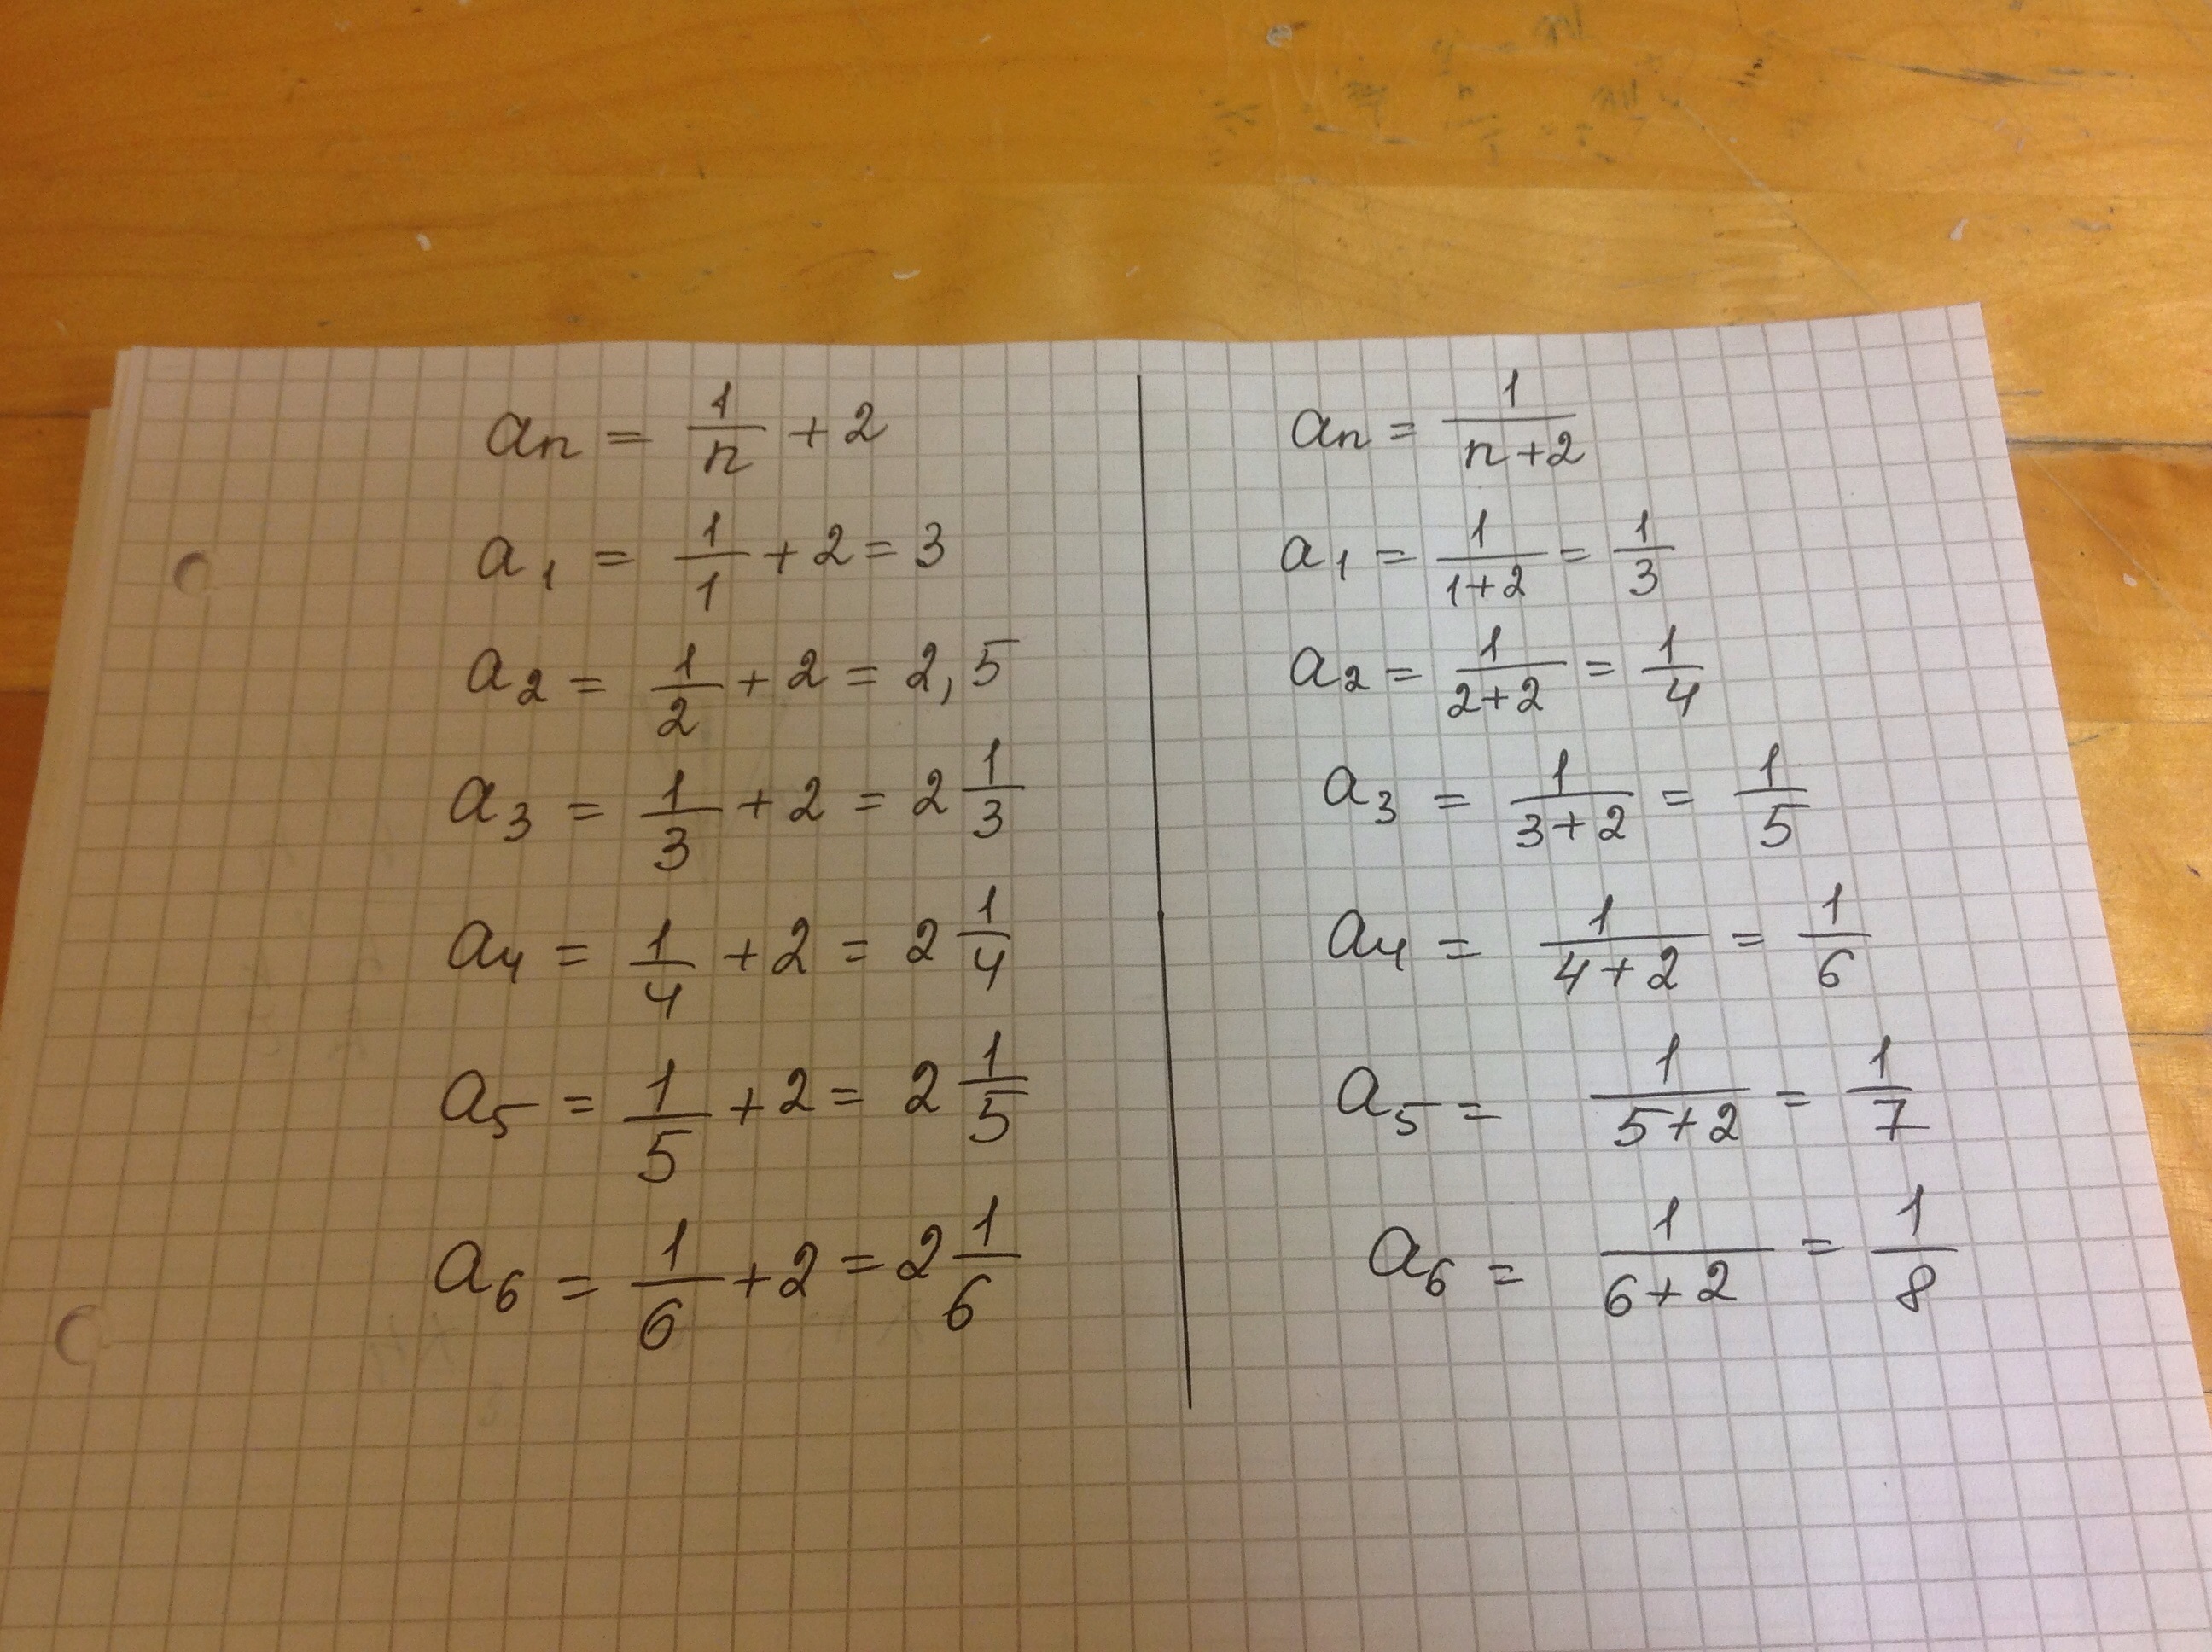 an = 1/n + 2
a1 = 1/1 + 2 = 3
a2 = 1/2 + 2 = 2,5
a3 = 1/3 + 2 = 2 1/3
a4 = 1/4 + 2 = 2 1/4
a5 = 1/5 + 2 = 2 1/5
a6 = 1/6 + 2 = 2 1/6
an = 1/(n+2)
a1 = 1/(1+2) = 1/3
a2 = 1/(2+2) = 1/4
a3 = 1/(3+2) = 1/5
a4 = 1/(4+2) = 1/6
a5 = 1/(5+2) = 1/7
a6 = 1/(6+2) = 1/8